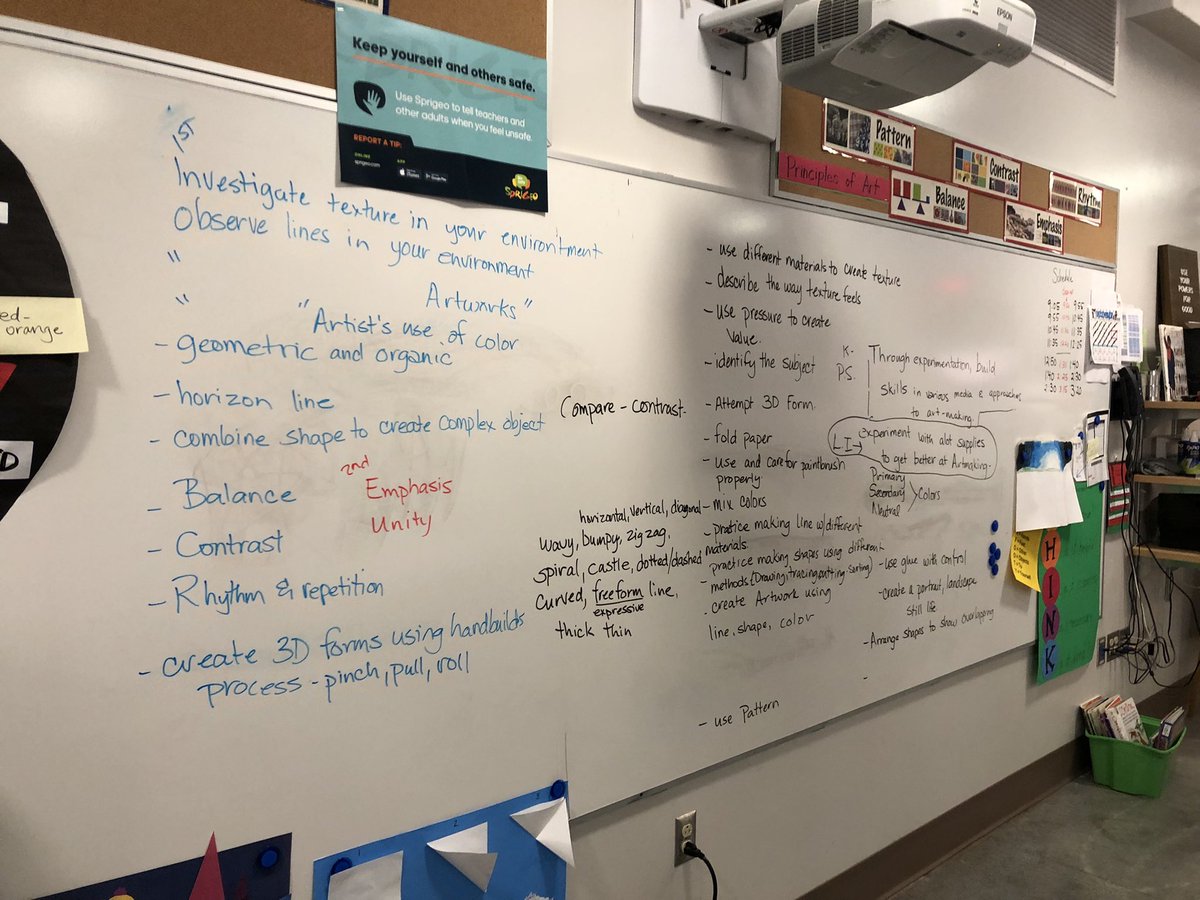 Keep yourself and others safe.
Use Sprigeo to tell teachers and
other adults when you feel unsafe.
REPORT A TIP:
ONLINE
sprigeo.com
APP
SPRIGEO
EPSON
Principles of Art
Pattern
Balance
Contrast
Emphasis
Rhythm
USE
YOUR
POWERS
FOR
GOOD
ed-
orange
1st
Investigate texture in your environ'tment
Observe lines in your environment
" " Artworks "
" Artist's use of color
- geometric and organic
- horizon line
- combine shape to create complex object
- Balance
- Contrast
- Rhythm & repetition
- create 3D forms using handbuilds
process - pinch, pull, roll
2nd
Emphasis
Unity
Compare - Contrast.
horizontal, vertical, diagonal
wavy, bumpy, zigzag,
spiral, castle, dotted/dashed
curved, freeform line,
expressive
thick thin
- use different materials to create texture
- describe the way texture feels
- use pressure to create
Value.
- identify the subject
- Attempt 3D Form.
- fold paper
- use and care for paintbrush
properly.
- mix colors
- Practice making line w/different
materials.
- practice making shapes using different
methods (Drawing, tracing, cutting)
- create Artwork using
line, shape, color
- use Pattern
K-
PS.
Through experimentation, build
skills in various media & approaches
to art-making.
LI → experiment with alot supplies
to get better at Artmaking.
Primary
Secondary
Neutral
Colors
- use glue with control
- create a portrait, landscape
still life
- Arrange shapes to show overlapping
-
Schedule
9:05 9:55
9:55 10:45
10:45 11:35
11:35 12:25
12:50 1:40
1:40 2:30
2:30 3:20
H
I
N
K